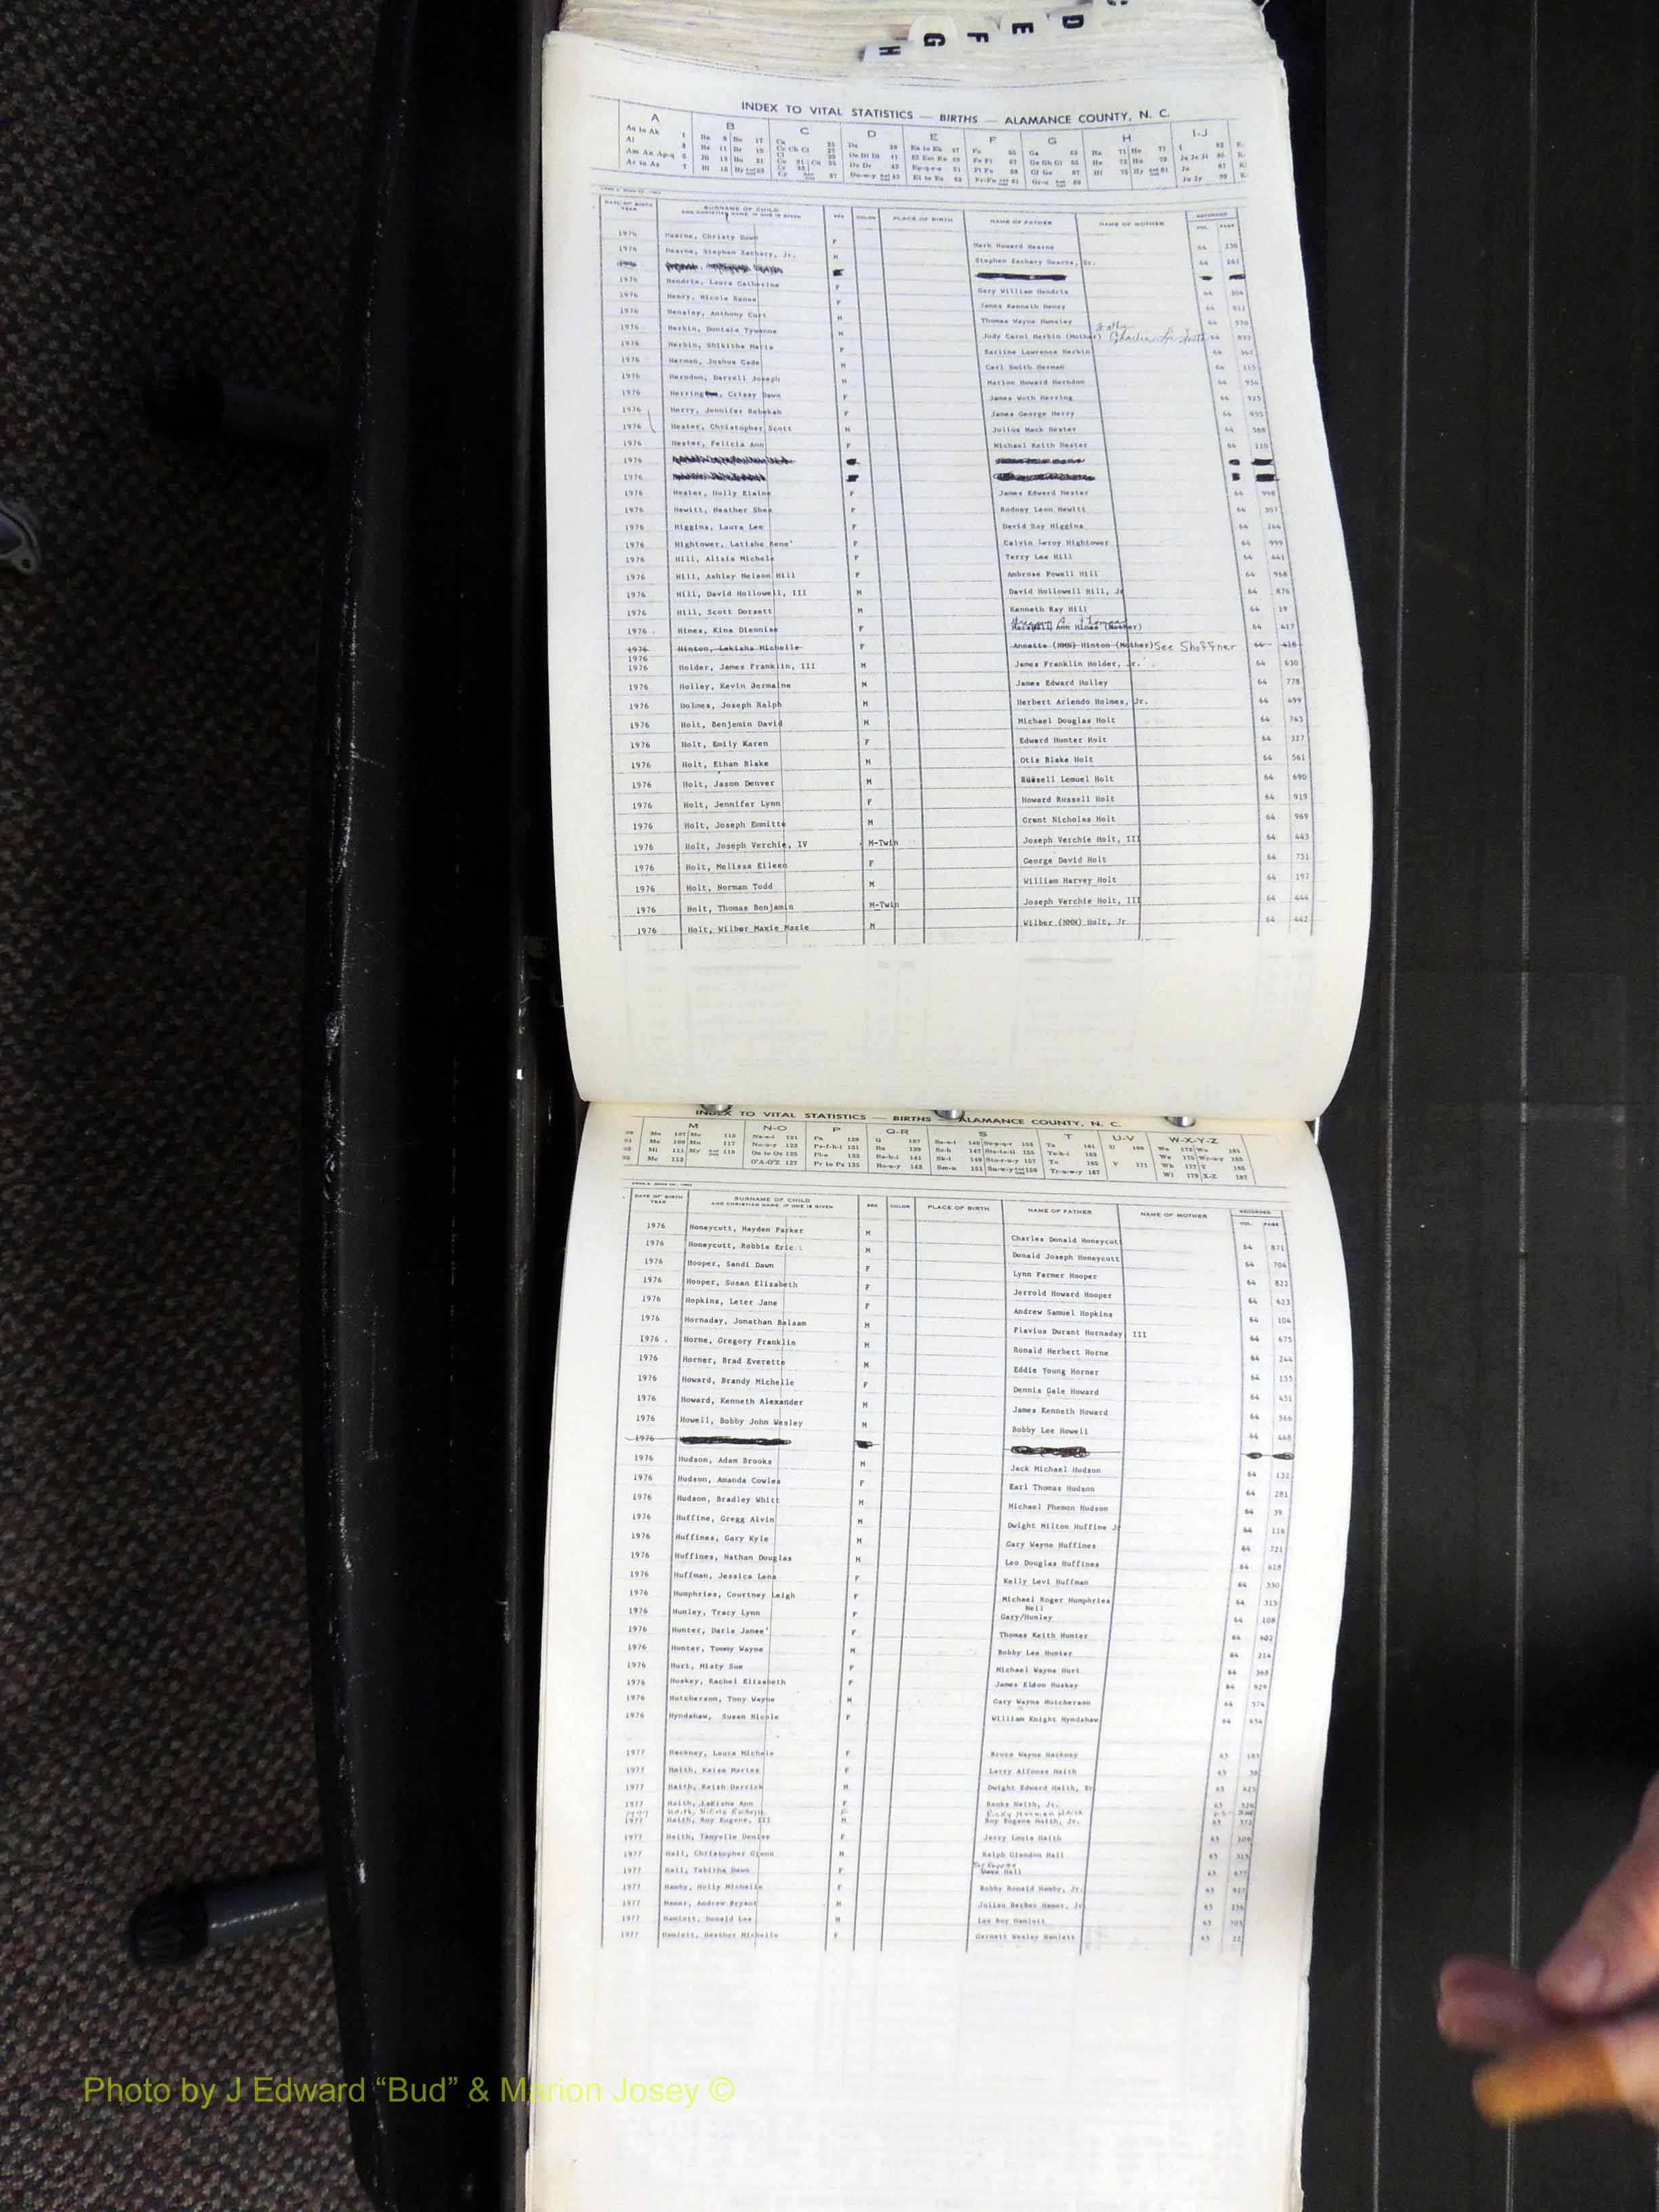 H G F E D
INDEX TO VITAL STATISTICS — BIRTHS — ALAMANCE COUNTY, N. C.
A B C D E F G H I-J
DATE OF BIRTH YEAR SURNAME OF CHILD AND CHRISTIAN NAME, IF ONE IS GIVEN SEX COLOR PLACE OF BIRTH NAME OF FATHER NAME OF MOTHER RECORDED VOL. PAGE
1976 Hearne, Christy Dawn F Mark Howard Hearne 64 230
1976 Hearne, Stephen Zachary, Jr. M Stephen Zachary Hearne, Sr. 64 261
1976 Hendrix, Laura Catherine F Gary William Hendrix 64 304
1976 Henry, Nicole Renee F James Kenneth Henry 64 811
1976 Hensley, Anthony Curt M Thomas Wayne Hensley 64 570
1976 Herbin, Dontale Tywanne M Judy Carol Herbin (Mother) 64 832
1976 Herbin, Shikitha Maria F Earline Lawrence Herbin 64
1976 Herman, Joshua Cade M Carl Smith Herman 64 115
1976 Herndon, Darrell Joseph M Marion Howard Herndon 64 956
1976 Herring, Crissy Dawn F James Woth Herring 64 925
1976 Herry, Jennifer Rebekah F James George Herry 64 955
1976 Hester, Christopher Scott M Julius Mack Hester 64 588
1976 Hester, Felicia Ann F Michael Keith Hester 64 110
1976
1976
1976 Hester, Holly Elaine F James Edward Hester 64 998
1976 Hewitt, Heather Shea F Rodney Leon Hewitt 64 307
1976 Higgins, Laura Lee F David Ray Higgins 64 164
1976 Hightower, Latisha Rene' F Calvin Leroy Hightower 64 999
1976 Hill, Alisia Michele F Terry Lee Hill 64 441
1976 Hill, Ashley Nelson Hill F Ambrose Powell Hill 64 968
1976 Hill, David Hollowell, III M David Hollowell Hill, Jr 64 876
1976 Hill, Scott Dorsett M Kenneth Ray Hill 64 19
1976 Hines, Kina Diennise F Ann Hines (Mother) 64 417
1976 Hinton, Lakisha Michelle F Annette (NMN) Hinton (Mother) See Shoffner 64 418
1976
1976 Holder, James Franklin, III M James Franklin Holder, Jr. 64 630
1976 Holley, Kevin Jermaine M James Edward Holley 64 778
1976 Holmes, Joseph Ralph M Herbert Arlendo Holmes, Jr. 64 499
1976 Holt, Benjamin David M Michael Douglas Holt 64 743
1976 Holt, Emily Karen F Edward Hunter Holt 64 327
1976 Holt, Ethan Blake M Otis Blake Holt 64 561
1976 Holt, Jason Denver M Russell Lemuel Holt 64 690
1976 Holt, Jennifer Lynn F Howard Russell Holt 64 919
1976 Holt, Joseph Emmitte M Grant Nicholas Holt 64 969
1976 Holt, Joseph Verchie, IV M-Twin Joseph Verchie Holt, III 64 443
1976 Holt, Melissa Eileen F George David Holt 64 751
1976 Holt, Norman Todd M William Harvey Holt 64 197
1976 Holt, Thomas Benjamin M-Twin Joseph Verchie Holt, III 64 444
1976 Holt, Wilber Maxie Mazie M Wilber (NMN) Holt, Jr 64 442
INDEX TO VITAL STATISTICS — BIRTHS — ALAMANCE COUNTY, N. C.
M N-O P Q-R S T U-V W-X-Y-Z
DATE OF BIRTH YEAR SURNAME OF CHILD AND CHRISTIAN NAME, IF ONE IS GIVEN SEX COLOR PLACE OF BIRTH NAME OF FATHER NAME OF MOTHER RECORDED VOL. PAGE
1976 Honeycutt, Hayden Parker M Charles Donald Honeycutt 64 871
1976 Honeycutt, Robbie Eric M Donald Joseph Honeycutt 64 704
1976 Hooper, Sandi Dawn F Lynn Farmer Hooper 64 822
1976 Hooper, Susan Elizabeth F Jerrold Howard Hooper 64 623
1976 Hopkins, Leter Jane F Andrew Samuel Hopkins 64 104
1976 Hornaday, Jonathan Balaam M Flavius Durant Hornaday III 64 675
1976 Horne, Gregory Franklin M Ronald Herbert Horne 64 244
1976 Horner, Brad Everette M Eddie Young Horner 64 155
1976 Howard, Brandy Michelle F Dennis Gale Howard 64 451
1976 Howard, Kenneth Alexander M James Kenneth Howard 64 566
1976 Howell, Bobby John Wesley M Bobby Lee Howell 64 468
1976
1976 Hudson, Adam Brooks M Jack Michael Hudson 64 132
1976 Hudson, Amanda Cowles F Earl Thomas Hudson 64 281
1976 Hudson, Bradley Whitt M Michael Phemon Hudson 64 39
1976 Huffine, Gregg Alvin M Dwight Milton Huffine Jr 64 116
1976 Huffines, Gary Kyle M Gary Wayne Huffines 64 721
1976 Huffines, Nathan Douglas M Leo Douglas Huffines 64 618
1976 Huffman, Jessica Lena F Kelly Levi Huffman 64 330
1976 Humphries, Courtney Leigh F Michael Roger Humphries 64 315
Neil
1976 Hunley, Tracy Lynn F Gary/Hunley 64 108
1976 Hunter, Darla Janee' F Thomas Keith Hunter 64 602
1976 Hunter, Tommy Wayne M Bobby Lee Hunter 64 214
1976 Hurt, Misty Sue F Michael Wayne Hurt 64 368
1976 Huskey, Rachel Elizabeth F James Eldon Huskey 64 929
1976 Hutcherson, Tony Wayne M Gary Wayne Hutcherson 64 574
1976 Hyndshaw, Susan Nicole F William Knight Hyndshaw 64 454
1977 Hackney, Laura Michele F Bruce Wayne Hackney 65 185
1977 Haith, Keisa Maries F Larry Alfonso Haith 65 58
1977 Haith, Keith Derrick M Dwight Edward Haith, Sr 65 425
1977 Haith, LaKisha Ann F Banks Haith, Jr. 65
1977 Haith, Nicole F Ricky Haith
1977 Haith, Roy Eugene, III M Roy Eugene Haith, Jr. 65 572
1977 Haith, Tanyelle Denise F Jerry Louis Haith 65 109
1977 Hall, Christopher Glenn M Ralph Glendon Hall 65 315
1977 Hall, Tabitha Dawn F Hall 65 677
1977 Hamby, Holly Michelle F Bobby Ronald Hamby, Jr. 65 927
1977 Hamer, Andrew Bryant M Julian Barber Hamer, Jr 65 256
1977 Hamlett, Donald Lee M Lee Roy Hamlett 65 705
1977 Hamlett, Heather Michelle F Garnett Wesley Hamlett 65 22
Photo by J Edward “Bud” & Marion Josey ©